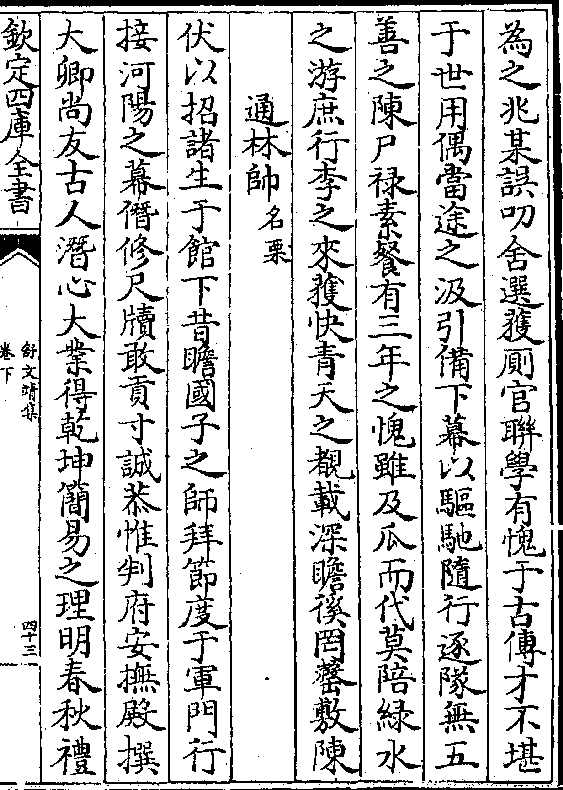 為之兆某誤叨舍選獲厠官聯學有愧于古傳才不堪
于世用偶當途之汲引備下幕以驅馳隨行逐隊無五
善之陳尸祿素餐有三年之愧雖及瓜而代莫陪綠水
之游庶行李之來獲快青天之覩載深瞻徯罔罄敷陳
通林帥名栗
伏以招諸生于館下昔瞻國子之師拜節度于軍門行
接河陽之幕僭修尺牘敢貢寸誠恭惟判府安撫殿撰
大卿尚友古人潛心大業得乾坤簡易之理明春秋禮
欽定四庫全書
舒文靖集
卷下
四十三